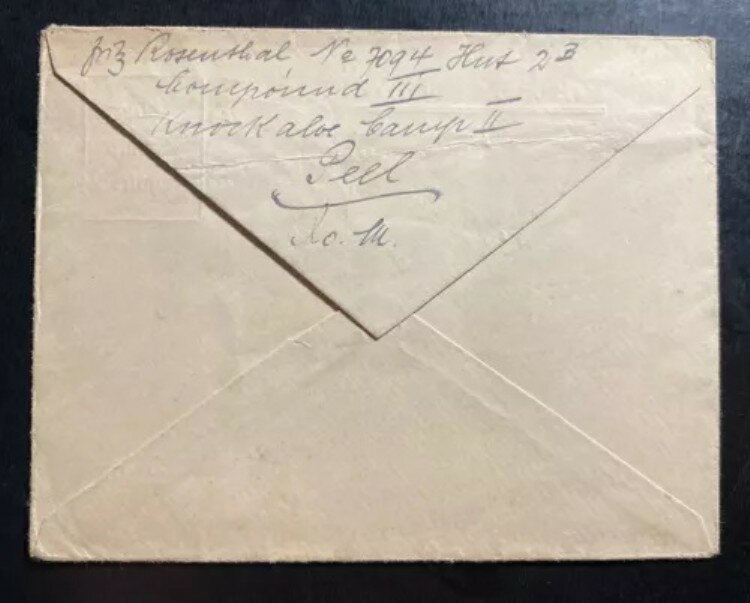 Fritz Rosenthal No 7094 Hut 2B
Compound III
Knockaloe Camp II
Peel
I.o.M.